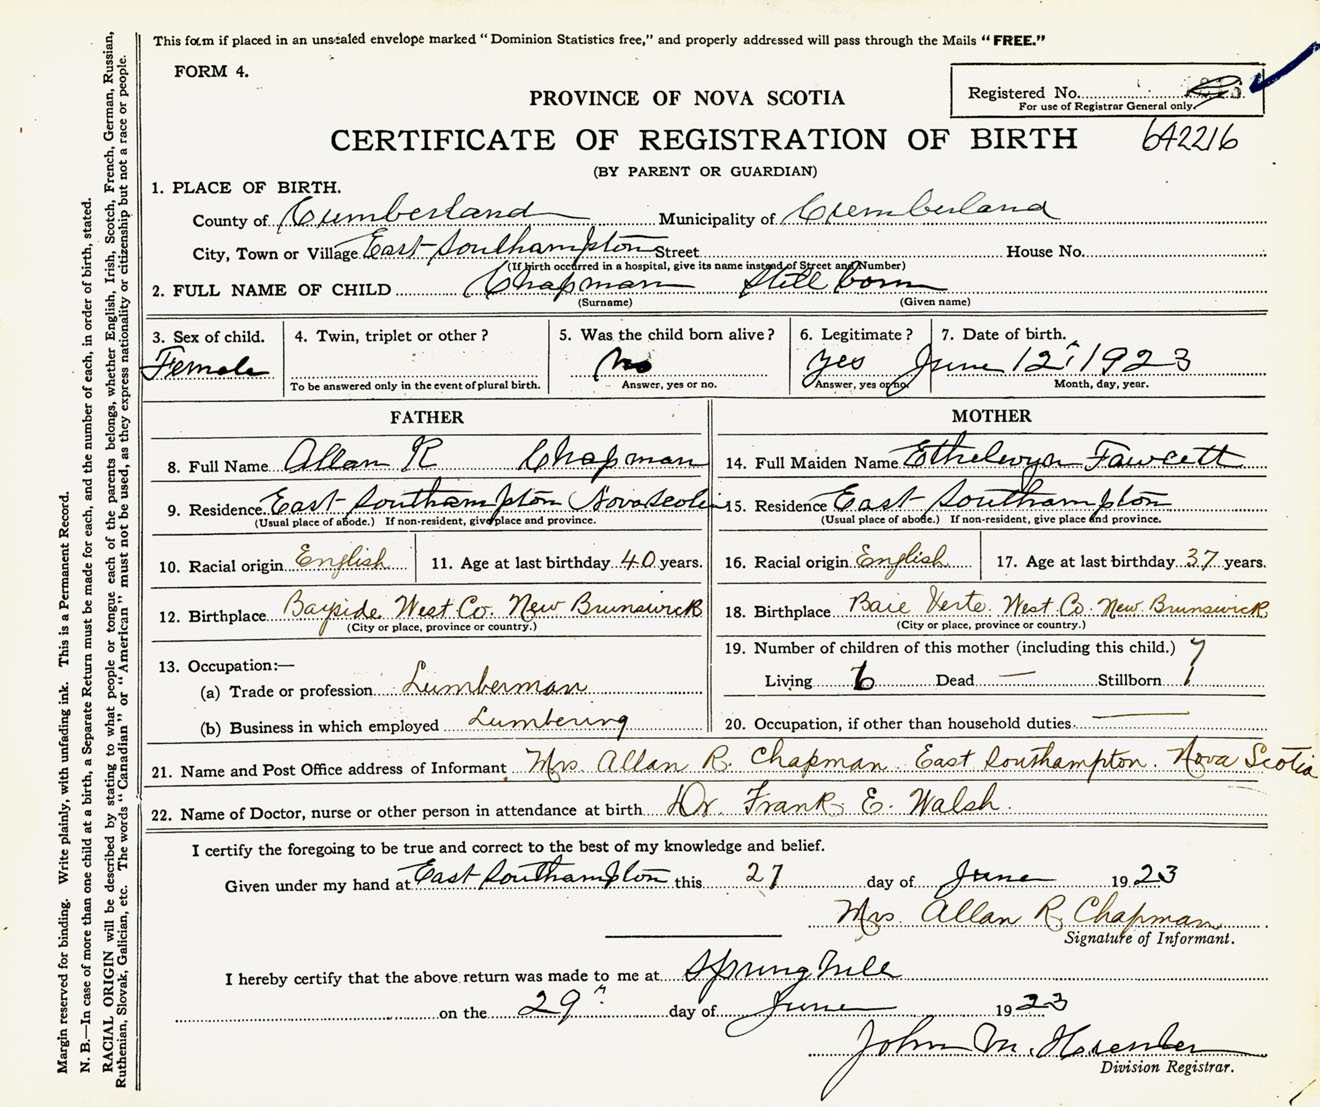 This form if placed in an unsealed envelope marked "Dominion Statistics free," and properly addressed will pass through the Mails "FREE."
FORM 4.
Registered No.
For use of Registrar General only.
PROVINCE OF NOVA SCOTIA
642216
CERTIFICATE OF REGISTRATION OF BIRTH
(BY PARENT OR GUARDIAN)
1. PLACE OF BIRTH.
County of Cumberland Municipality of Cumberland
City, Town or Village East Southampton Street House No.
(If birth occurred in a hospital, give its name instead of Street and Number)
2. FULL NAME OF CHILD Chapman Still born
(Surname) (Given name)
3. Sex of child. 4. Twin, triplet or other? 5. Was the child born alive? 6. Legitimate? 7. Date of birth.
Female no yes June 12, 1923
To be answered only in the event of plural birth. Answer, yes or no. Answer, yes or no. Month, day, year.
FATHER MOTHER
8. Full Name Allan R Chapman 14. Full Maiden Name Ethelwyn Fawcett
9. Residence East Southampton Nova Scotia 15. Residence East Southampton
(Usual place of abode.) If non-resident, give place and province. (Usual place of abode.) If non-resident, give place and province.
10. Racial origin English 11. Age at last birthday 40 years. 16. Racial origin English 17. Age at last birthday 37 years.
12. Birthplace Bayside West Co. New Brunswick 18. Birthplace Baie Verte West Co. New Brunswick
(City or place, province or country.) (City or place, province or country.)
19. Number of children of this mother (including this child.) 7
13. Occupation:—
(a) Trade or profession Lumberman Living 6 Dead — Stillborn 1
(b) Business in which employed Lumbering 20. Occupation, if other than household duties —
21. Name and Post Office address of Informant Mrs. Allan R. Chapman. East Southampton. Nova Scotia
22. Name of Doctor, nurse or other person in attendance at birth Dr. Frank E. Walsh.
I certify the foregoing to be true and correct to the best of my knowledge and belief.
Given under my hand at East Southampton this 27 day of June 1923
Mrs. Allan R. Chapman
Signature of Informant.
I hereby certify that the above return was made to me at Springhill
on the 29" day of June 1923
John M.
Division Registrar.
Margin reserved for binding. Write plainly, with unfading ink. This is a Permanent Record.
N. B.—In case of more than one child at a birth, a Separate Return must be made for each, and the number of each, in order of birth, stated.
RACIAL ORIGIN will be described by stating to what people or tongue each of the parents belongs, whether English, Irish, Scotch, French, German, Russian,
Ruthenian, Slovak, Galician, etc. The words "Canadian" or "American" must not be used, as they express nationality or citizenship but not a race or people.